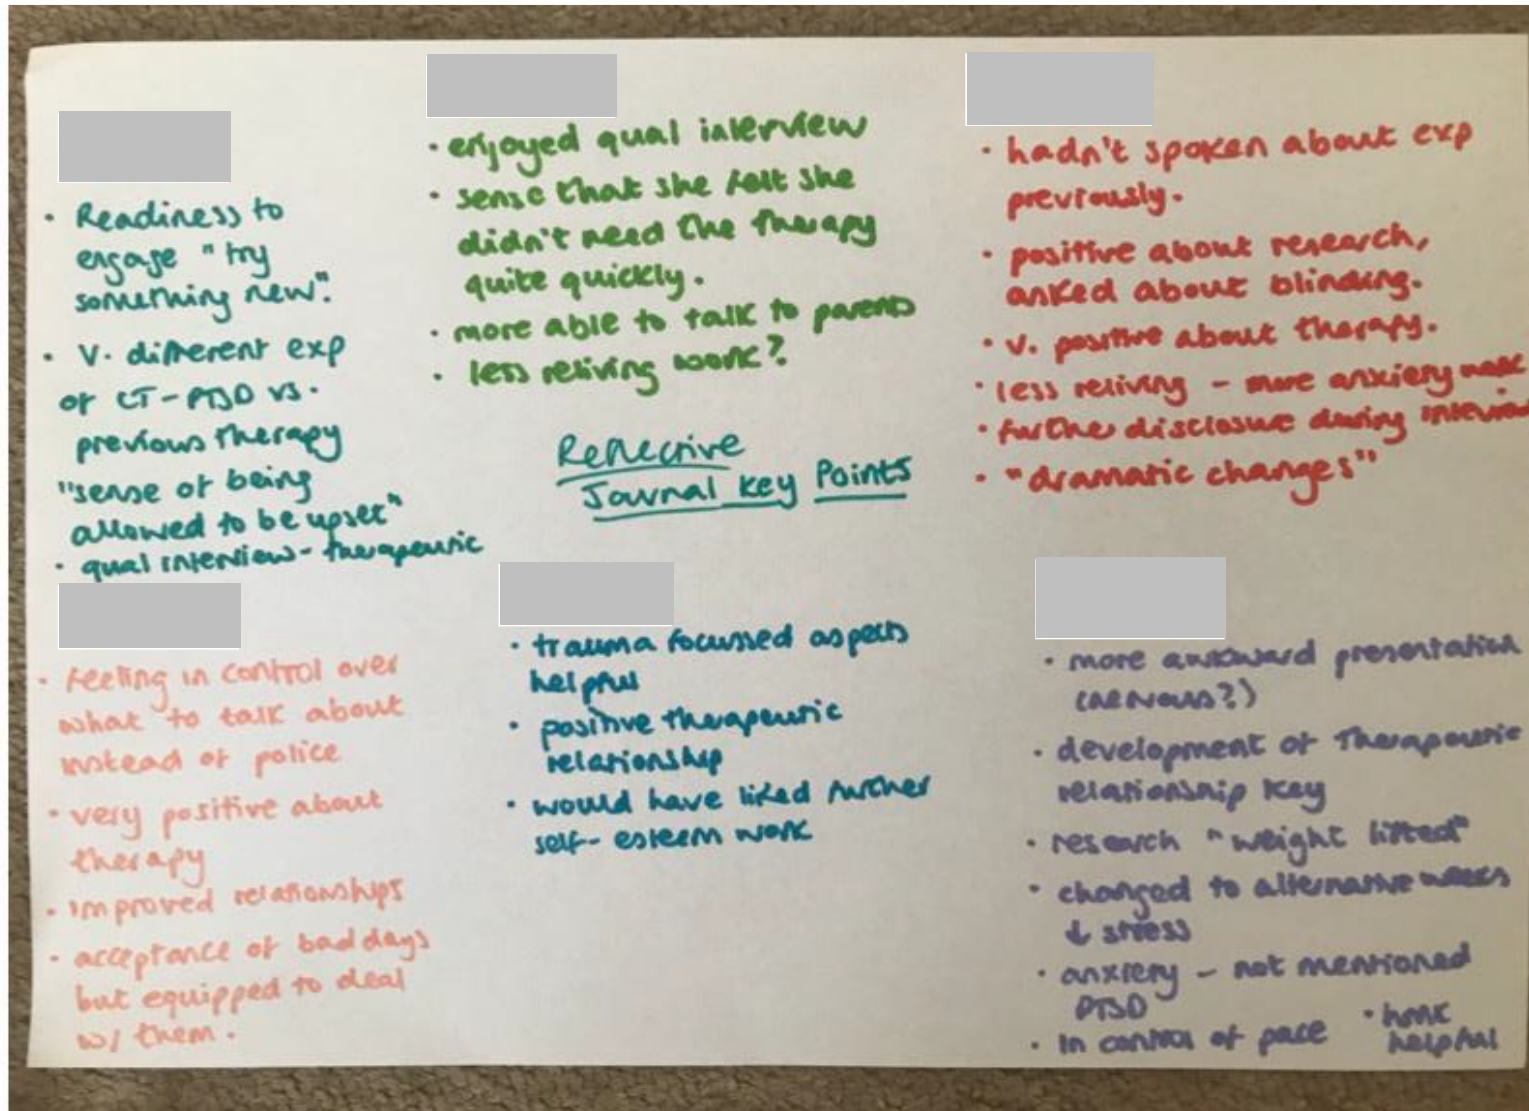 · Readiness to
engage "try
something new".
· V. different exp
of CT-PTSD vs.
previous therapy
"sense of being
allowed to be upset"
· qual interview - therapeutic
· enjoyed qual interview
· sense that she felt she
didn't need the therapy
quite quickly.
· more able to talk to parents
· less reliving work?
· hadn't spoken about exp
previously.
· positive about research,
asked about blinding.
· v. positive about therapy.
· less reliving - more anxiety work
· further disclosure during interview
· "dramatic changes"
Reflective
Journal Key Points
· feeling in control over
what to talk about
instead of police
· very positive about
therapy
· improved relationships
· acceptance of bad days
but equipped to deal
w/ them.
· trauma focussed aspects
helpful
· positive therapeutic
relationship
· would have liked further
self-esteem work
· more awkward presentation
(nervous?)
· development of therapeutic
relationship key
· research "weight lifted"
· changed to alternative weeks
↓ stress
· anxiety - not mentioned
PTSD
· In control of pace
helpful